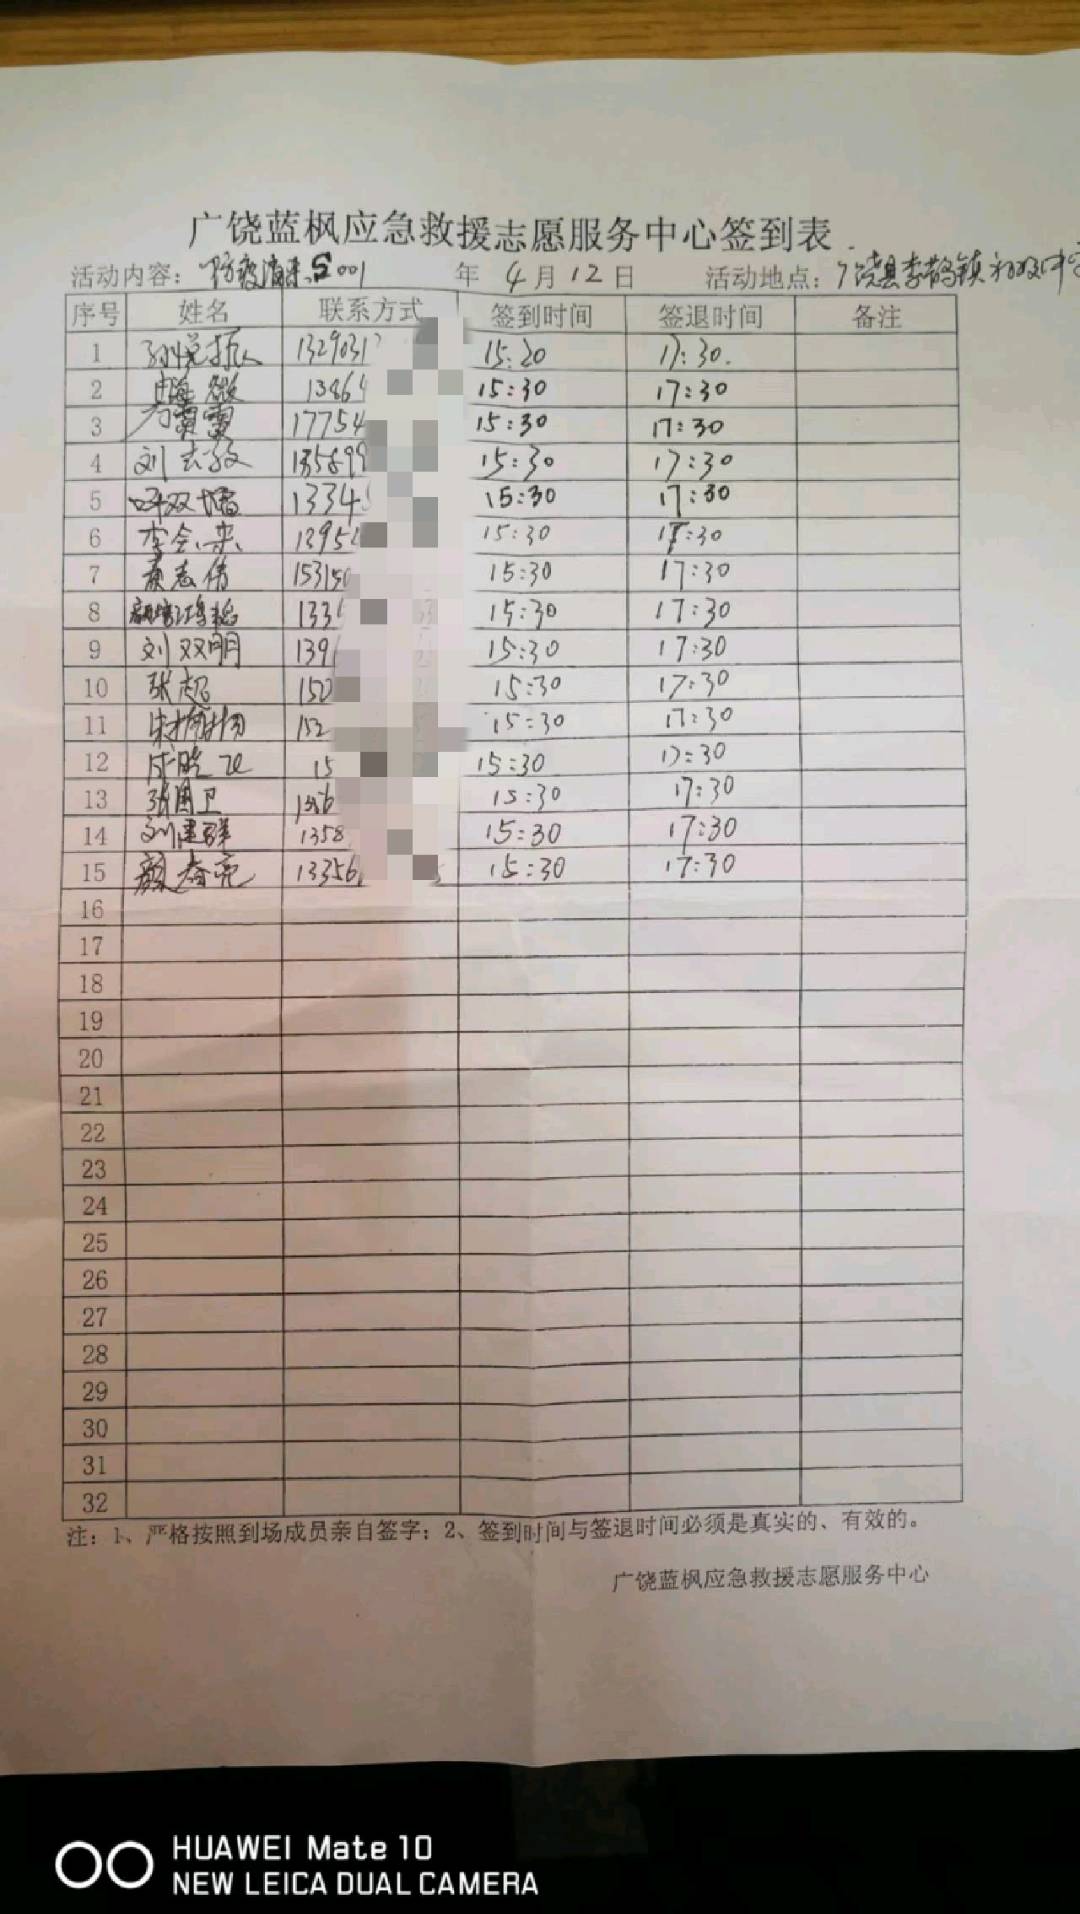 广饶蓝枫应急救援志愿服务中心签到表
活动内容：防疫消杀S001 年 4月12日 活动地点：广饶县李鹊镇初级中学
序号 姓名 联系方式 签到时间 签退时间 备注
1 孙悦振 1329031 15:20 17:30.
2 13864 15:30 17:30
3 17754 15:30 17:30
4 刘志敏 135899 15:30 17:30
5 13345 15:30 17:30
6 李会来 1395 15:30 17:30
7 黄志伟 153150 15:30 17:30
8 133 15:30 17:30
9 刘双明 139 15:30 17:30
10 张超 150 15:30 17:30
11 152 15:30 17:30
12 15 15:30 17:30
13 张国卫 15:30 17:30
14 刘建群 1358 15:30 17:30
15 颜春亮 13356 15:30 17:30
16
17
18
19
20
21
22
23
24
25
26
27
28
29
30
31
32
注：1、严格按照到场成员亲自签字；2、签到时间与签退时间必须是真实的、有效的。
广饶蓝枫应急救援志愿服务中心
HUAWEI Mate 10
NEW LEICA DUAL CAMERA